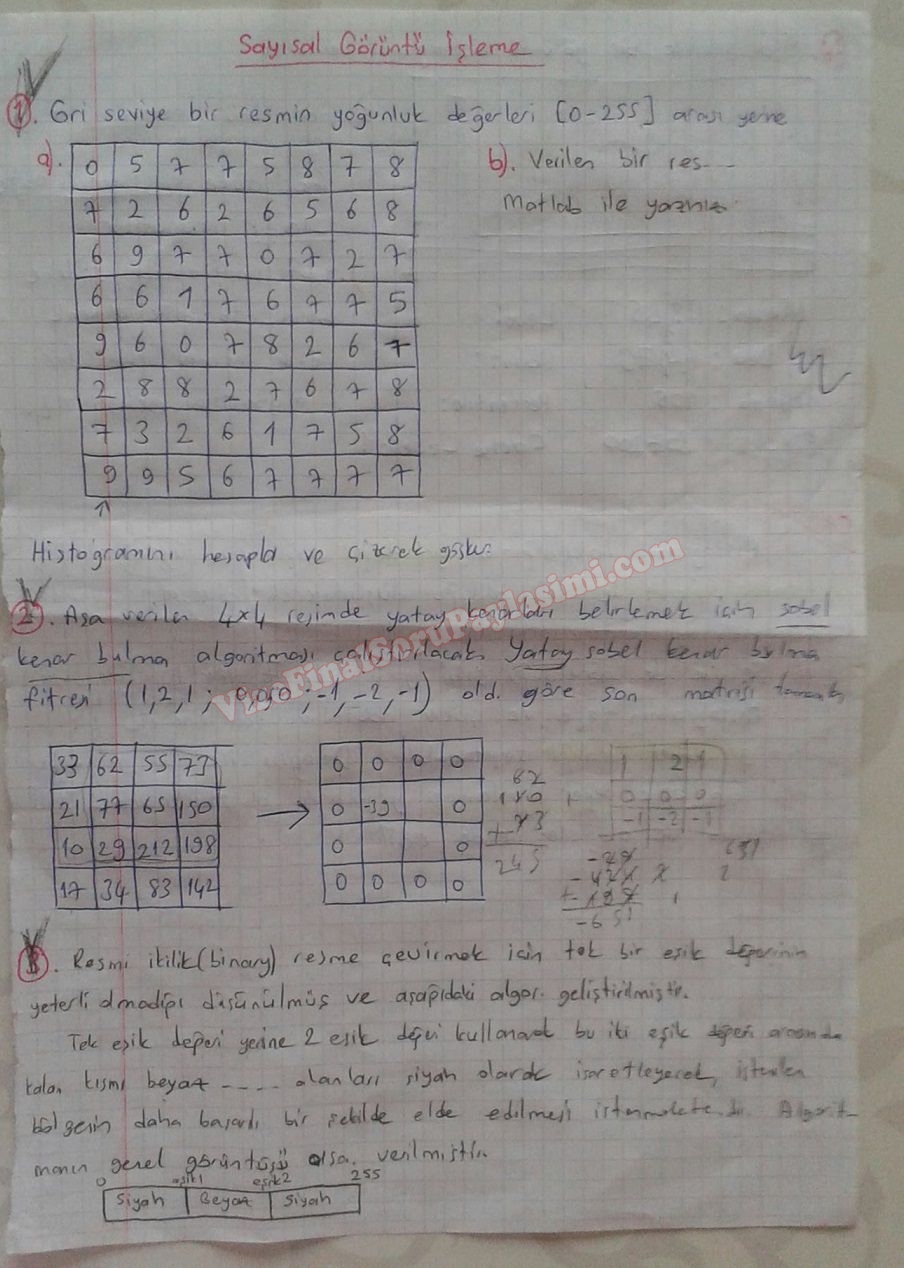 Sayısal Görüntü İşleme
1. Gri seviye bir resmin yoğunluk değerleri [0-255] arası yerine
a).
0 5 7 7 5 8 7 8
7 2 6 2 6 5 6 8
6 9 7 7 0 7 2 7
6 6 1 7 6 7 7 5
9 6 0 7 8 2 6 7
2 8 8 2 7 6 7 8
7 3 2 6 1 7 5 8
9 9 5 6 7 7 7 7
b). Verilen bir res-...
Matlab ile yazınız.
Histogramını hesapla ve çizerek göster
2. Aşa verilen 4x4 resimde yatay kenarları belirlemek için sobel
kenar bulma algoritması çalıştırılacak. Yatay sobel kenar bulma
fitresi (1,2,1 ; 0,0,0 ; -1,-2,-1) old. göre son matrisi
33 62 55 73
21 77 65 150
10 29 212 198
17 34 83 142
0 0 0 0
0 -39 0
0 0
0 0 0 0
1 2 1
0 0 0
-1 -2 -1
62
+
245
-651
3. Resmi ikilik(binary) resme çevirmek için tek bir eşik değerinin
yeterli olmadığı düşünülmüş ve aşağıdaki algor. geliştirilmiştir.
Tek eşik değeri yerine 2 eşik değeri kullanarak bu iki eşik değeri arasında
kalan kısmı beyaz ..... alanları siyah olarak işaretleyerek, istenilen
bölgenin daha başarılı bir şekilde elde edilmesi istenmektedir. Algorit-
manın genel görüntüsü aşa. verilmiştir.
0 eşik1 eşik2 255
Siyah Beyaz Siyah
VizeFinalSoruPaylasimi.com